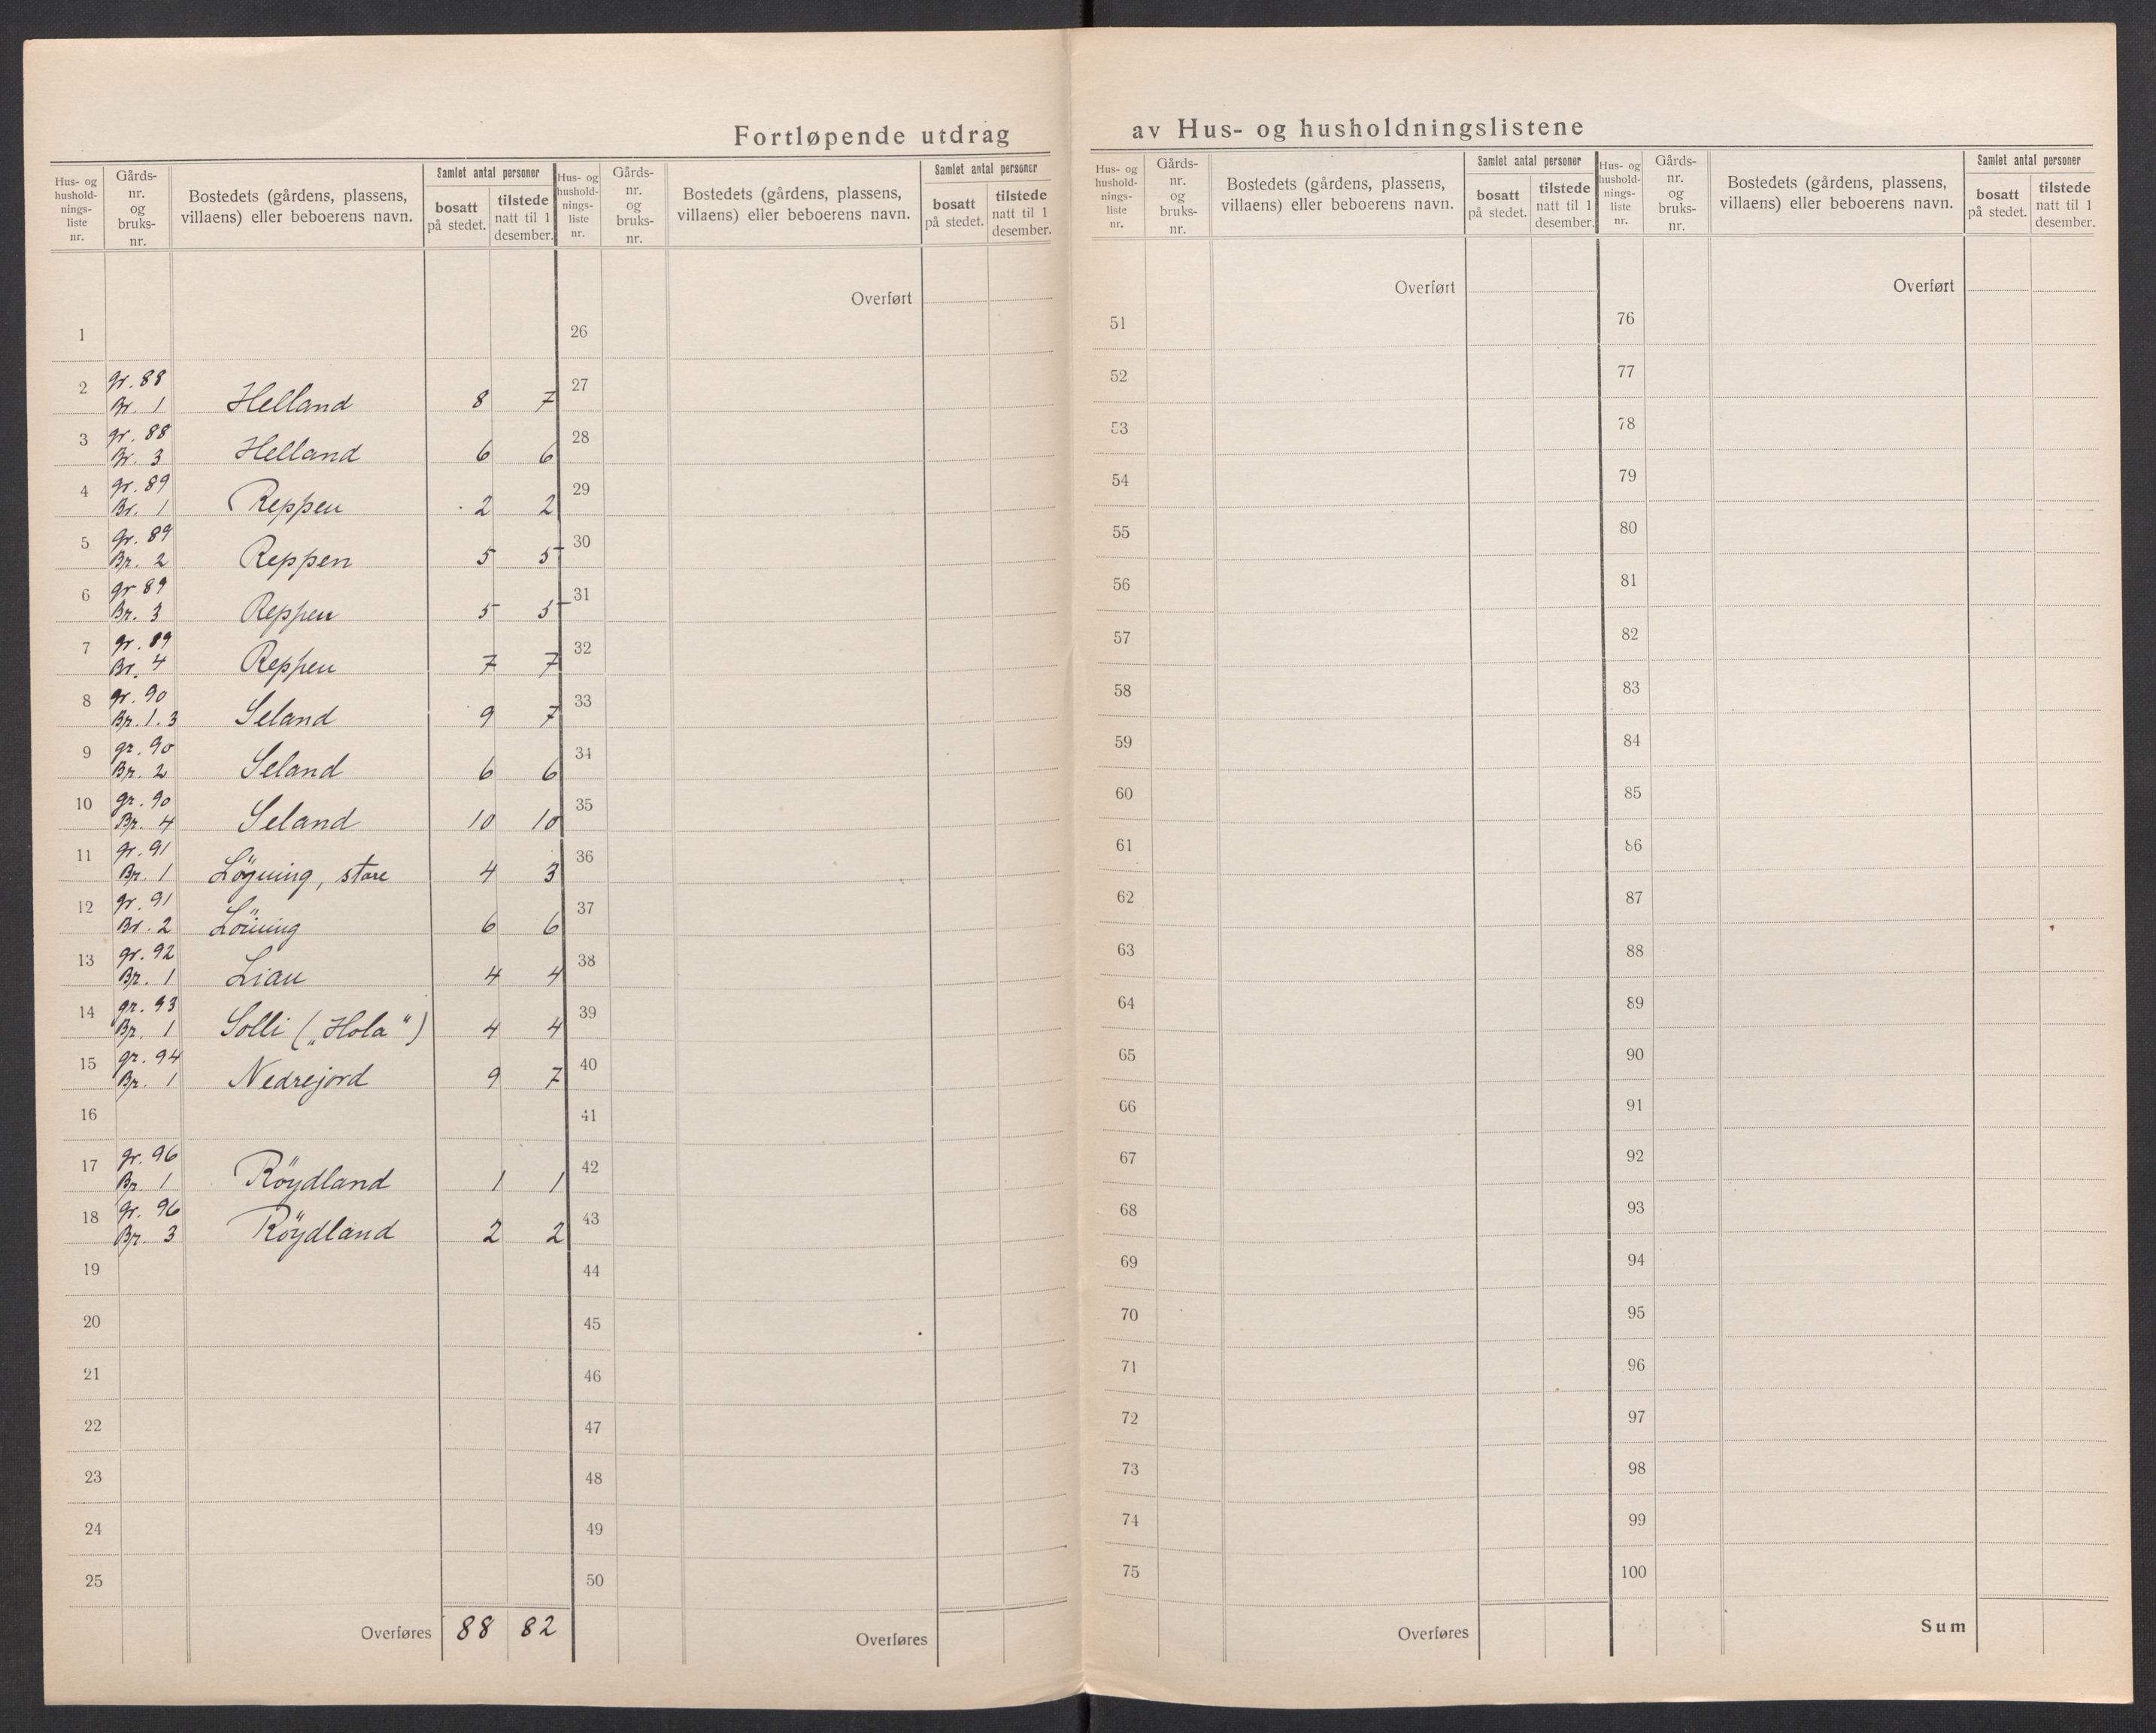 Fortløpende utdrag av Hus- og husholdningslistene
Hus- og husholdnings-liste nr. Gårds-nr. og bruks-nr. Bostedets (gårdens, plassens, villaens) eller beboerens navn. Samlet antal personer bosatt på stedet. tilstede natt til 1 desember.
1
2 gr. 88 Br. 1 Helland 8 7
3 gr. 88 Br. 3 Helland 6 6
4 gr. 89 Br. 1 Reppen 2 2
5 gr. 89 Br. 2 Reppen 5 5
6 gr 89 Br. 3 Reppen 5 5
7 gr. 89 Br. 4 Reppen 7 7
8 gr. 90 Br. 1. 3 Seland 9 7
9 gr. 90 Br. 2 Seland 6 6
10 gr. 90 Br. 4 Seland 10 10
11 gr. 91 Br. 1 Löyning, store 4 3
12 gr. 91 Br. 2 Löining 6 6
13 gr. 92 Br. 1 Lian 4 4
14 gr. 93 Br. 1 Solli („Hola") 4 4
15 gr. 94 Br. 1 Nedrejord 9 7
16
17 gr. 96 Br. 1 Röydland 1 1
18 gr. 96 Br. 3 Röydland 2 2
19
20
21
22
23
24
25
Overføres 88 82
Hus- og husholdnings-liste nr. Gårds-nr. og bruks-nr. Bostedets (gårdens, plassens, villaens) eller beboerens navn. Samlet antal personer bosatt på stedet. tilstede natt til 1 desember.
Overført
26
27
28
29
30
31
32
33
34
35
36
37
38
39
40
41
42
43
44
45
46
47
48
49
50
Overføres
Hus- og husholdnings-liste nr. Gårds-nr. og bruks-nr. Bostedets (gårdens, plassens, villaens) eller beboerens navn. Samlet antal personer bosatt på stedet. tilstede natt til 1 desember.
Overført
51
52
53
54
55
56
57
58
59
60
61
62
63
64
65
66
67
68
69
70
71
72
73
74
75
Overføres
Hus- og husholdnings-liste nr. Gårds-nr. og bruks-nr. Bostedets (gårdens, plassens, villaens) eller beboerens navn. Samlet antal personer bosatt på stedet. tilstede natt til 1 desember.
Overført
76
77
78
79
80
81
82
83
84
85
86
87
88
89
90
91
92
93
94
95
96
97
98
99
100
Sum